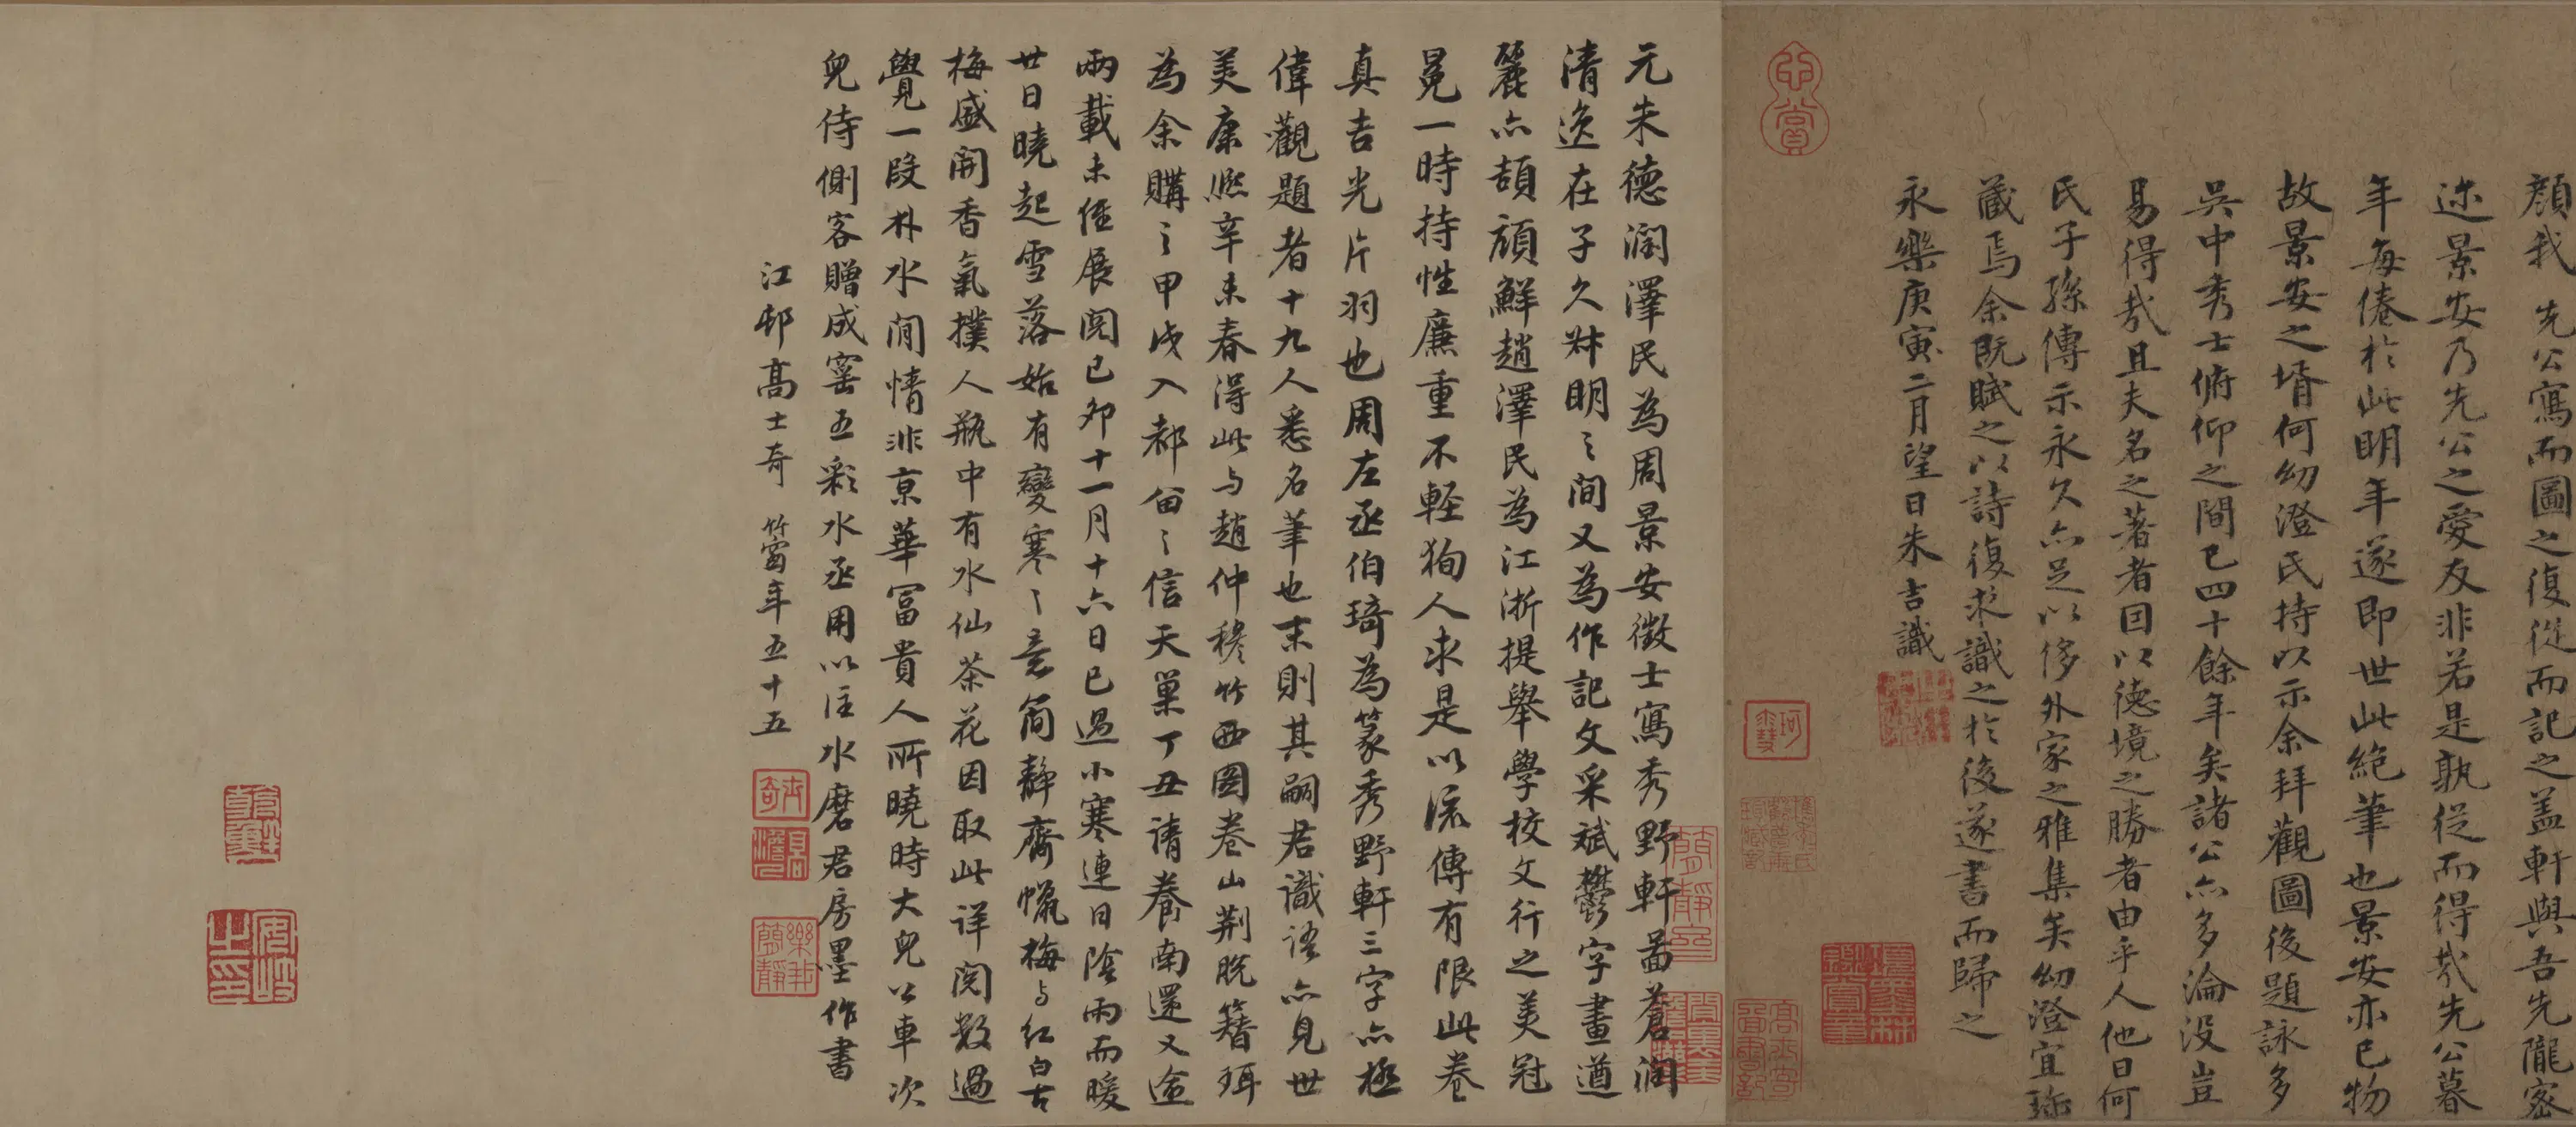 顔我 先公寫而圖之復從而記之盖軒與吾先隴密
迩景安乃先公之愛友非若是孰從而得哉先公暮
年每倦於此明年遂即世此絶筆也景安亦已物
故景安之壻何幼澄氏持以示余拜觀圖後題詠多
吳中秀士俯仰之間已四十餘年矣諸公亦多淪没豈
易得哉且夫名之著者固以德境之勝者由乎人他日何
氏子孫傳示永久亦足以侈外家之雅集矣幼澄宜珎
藏焉余既賦之以詩復求識之於後遂書而歸之
永樂庚寅二月望日朱吉識
元朱德潤澤民為周景安徵士寫秀野軒啚蒼潤
清逸在子久叔明之間又為作記文采斌欝字畫遒
麗亦頡頏鮮趙澤民為江浙提舉學校文行之美冠
冕一時持性廉重不輕狥人求是以流傳有限此卷
真吉光片羽也周左丞伯琦為篆秀野軒三字亦極
偉觀題者十九人悉名筆也末則其嗣君識語亦見世
美康熙辛未春得此与趙仲穆竹西圖卷山荆脱簪珥
為余購之甲戌入都留之信天巢丁丑請養南還又逾
兩載未經展閲已夘十一月十六日已過小寒連日陰雨而暖
廿日曉起雪落始有變寒之意简靜齋蠟梅与紅白古
梅盛開香氣撲人瓶中有水仙茶花因取此详閲數過
覺一段林水閒情非京華冨貴人所曉時大兒公車次
兒侍側客贈成窰五彩水丞用以注水磨君房墨作書
江邨高士奇 竹窗年五十五